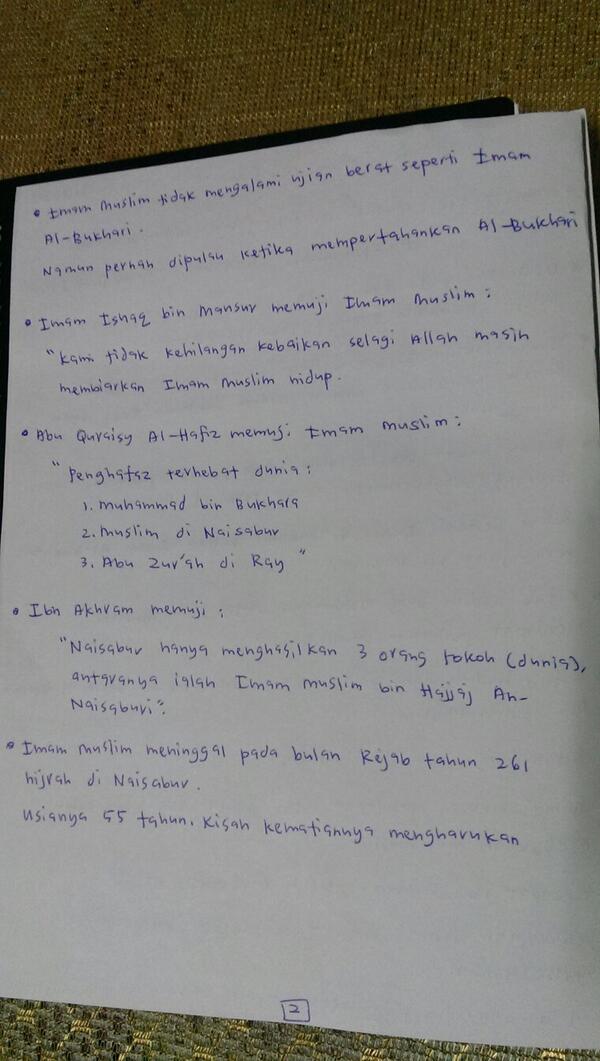 • Imam Muslim tidak mengalami ujian berat seperti Imam
Al-Bukhari.
Namun pernah dipulau ketika mempertahankan Al-Bukhari
• Imam Ishaq bin Mansur memuji Imam Muslim :
"Kami tidak kehilangan kebaikan selagi Allah masih
membiarkan Imam Muslim hidup.
• Abu Quraisy Al-Hafiz memuji Imam Muslim :
"Penghafaz terhebat dunia :
1. Muhammad bin Bukhara
2. Muslim di Naisabur
3. Abu Zur'ah di Ray "
• Ibn Akhram memuji :
"Naisabur hanya menghasilkan 3 orang tokoh (dunia),
antaranya ialah Imam Muslim bin Hajjaj An-
Naisaburi".
• Imam Muslim meninggal pada bulan Rejab tahun 261
hijrah di Naisabur.
Usianya 55 tahun. Kisah kematiannya mengharukan
2